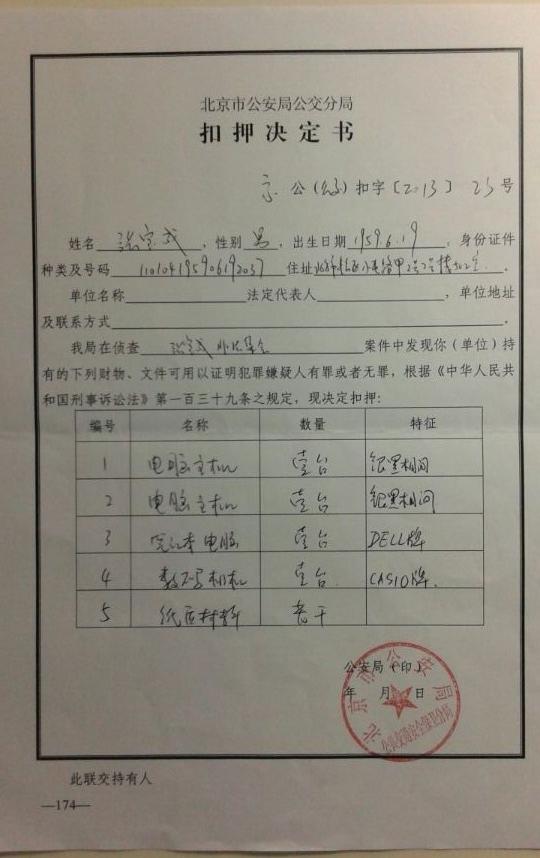 北京市公安局公交分局
扣押决定书
京 公（公交）扣字〔2013〕 23 号
姓名 张宝成 ，性别 男 ，出生日期 1959.6.19 ，身份证件
种类及号码 110104195906192037 住址
单位名称 法定代表人 ，单位地址
及联系方式 。
我局在侦查 张宝成非法集会 案件中发现你（单位）持
有的下列财物、文件可用以证明犯罪嫌疑人有罪或者无罪，根据《中华人民共
和国刑事诉讼法》第一百三十九条之规定，现决定扣押：
编号 名称 数量 特征
1 电脑主机 壹台 银黑相间
2 电脑主机 壹台 银黑相间
3 笔记本电脑 壹台 DELL牌
4 数码相机 壹台 CASIO牌.
5 纸质材料 若干
公安局（印）
年 月 日
北京市公安局
公共交通安全保卫分局
此联交持有人
—174—